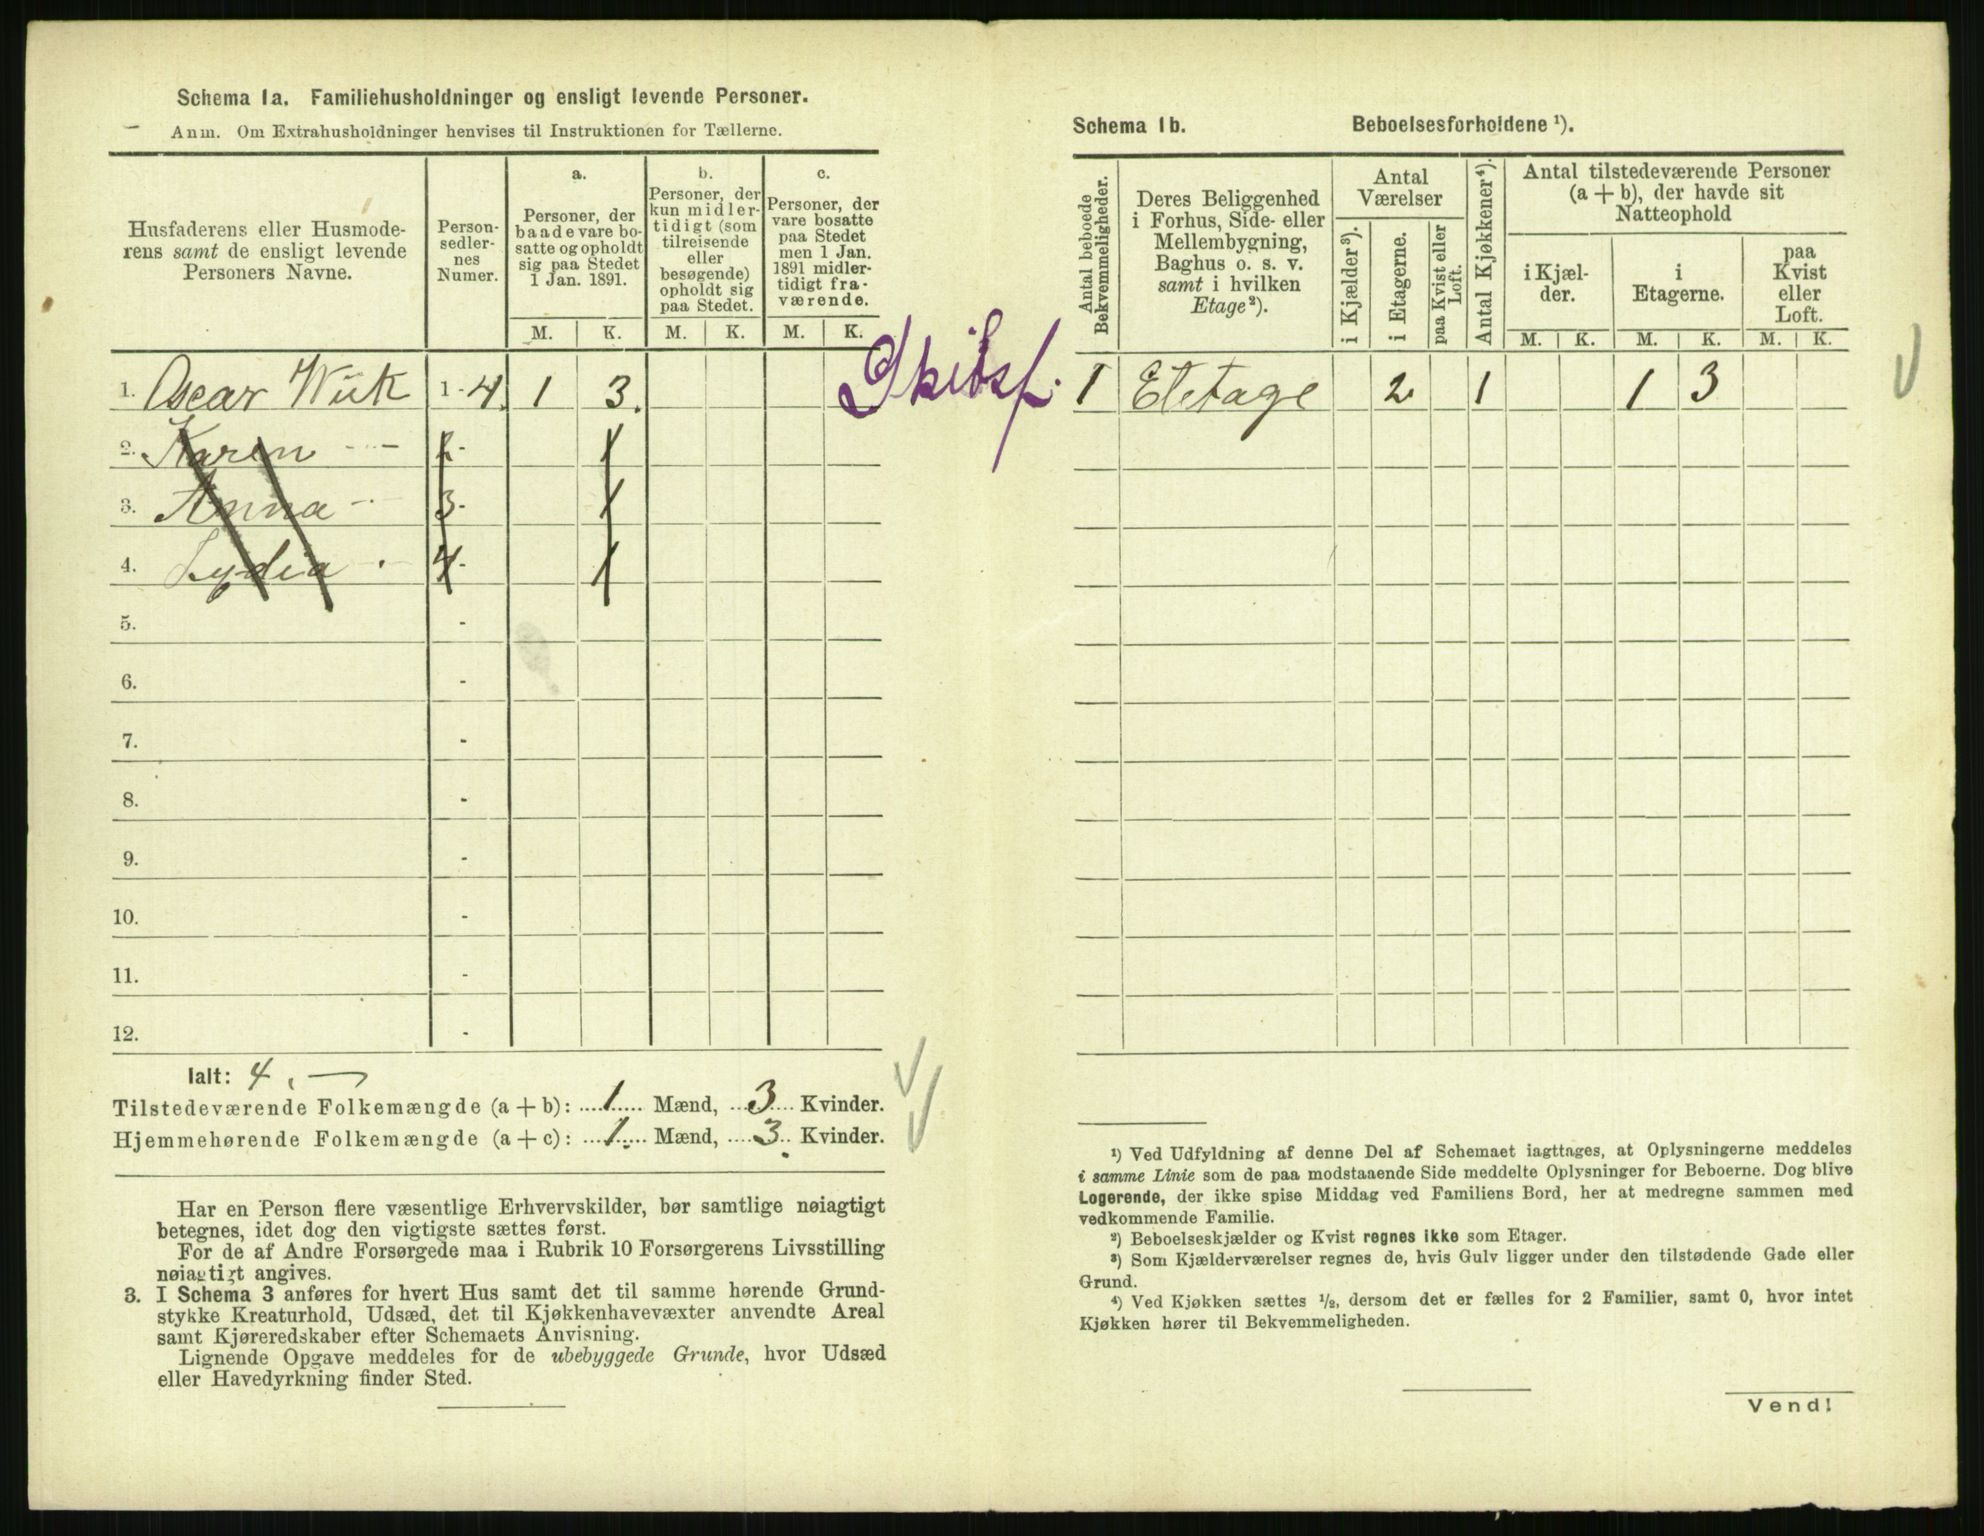 Schema 1a. Familiehusholdninger og ensligt levende Personer.
Anm. Om Extrahusholdninger henvises til Instruktionen for Tællerne.
Husfaderens eller Husmode-
rens samt de ensligt levende
Personers Navne.
Person-
sedler-
nes
Numer.
a.
Personer, der
baade vare bo-
satte og opholdt
sig paa Stedet
1 Jan. 1891.
b.
Personer, der
kun midler-
tidigt (som
tilreisende
eller
besøgende)
opholdt sig
paa Stedet.
c.
Personer, der
vare bosatte
paa Stedet
men 1 Jan.
1891 midler-
tidigt fra-
værende.
M. K. M. K. M. K.
1. Oscar Wiik 1-4. 1 3.
2. Karen - - 2- 1
3. Anna - 3- 1
4. Lydia - 4- 1
5. -
6. -
7. -
8. -
9. -
10. -
11. -
12. -
Ialt: 4. —
Tilstedeværende Folkemængde (a + b): 1 Mænd, 3 Kvinder.
Hjemmehørende Folkemængde (a + c): 1. Mænd, 3. Kvinder.
Har en Person flere væsentlige Erhvervskilder, bør samtlige nøiagtigt
betegnes, idet dog den vigtigste sættes først.
For de af Andre Forsørgede maa i Rubrik 10 Forsørgerens Livsstilling
nøiagtigt angives.
3. I Schema 3 anføres for hvert Hus samt det til samme hørende Grund-
stykke Kreaturhold, Udsæd, det til Kjøkkenhavevæxter anvendte Areal
samt Kjøreredskaber efter Schemaets Anvisning.
Lignende Opgave meddeles for de ubebyggede Grunde, hvor Udsæd
eller Havedyrkning finder Sted.
Schema 1b. Beboelsesforholdene ¹).
Antal beboede
Bekvemmeligheder.
Deres Beliggenhed
i Forhus, Side- eller
Mellembygning,
Baghus o. s. v.
samt i hvilken
Etage²).
Antal
Værelser
i Kjælder³).
i Etagerne.
paa Kvist eller
Loft.
Antal Kjøkkener⁴).
Antal tilstedeværende Personer
(a + b), der havde sit
Natteophold
i Kjæl-
der.
i
Etagerne.
paa
Kvist
eller
Loft.
M. K. M. K. M. K.
1 Etetage 2 1 1 3
¹) Ved Udfyldning af denne Del af Schemaet iagttages, at Oplysningerne meddeles
i samme Linie som de paa modstaaende Side meddelte Oplysninger for Beboerne. Dog blive
Logerende, der ikke spise Middag ved Familiens Bord, her at medregne sammen med
vedkommende Familie.
²) Beboelseskjælder og Kvist regnes ikke som Etager.
³) Som Kjælderværelser regnes de, hvis Gulv ligger under den tilstødende Gade eller
Grund.
⁴) Ved Kjøkken sættes ½, dersom det er fælles for 2 Familier, samt 0, hvor intet
Kjøkken hører til Bekvemmeligheden.
Vend!